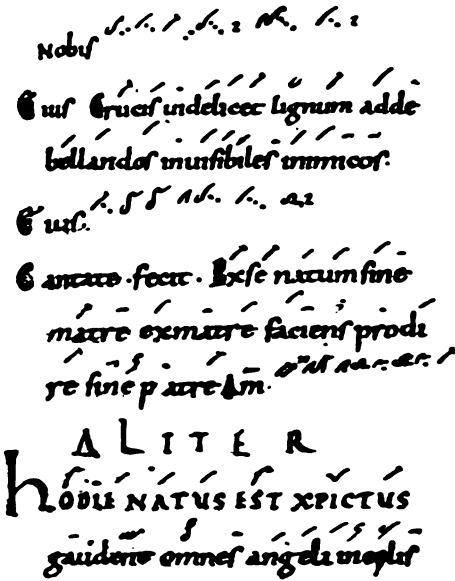 Nobiſ
Euiſ Cruciſ uidelicet lignum adde
bellandoſ inuiſibileſ inimicoſ.
Euiſ.
Cantate. fecit. Exſe natum ſine
matre exmatre facienſ prodi
re ſine patre Am̅.
ALITER
HODIE NATUS EST XPICTUS
gaudent omneſ angeli in